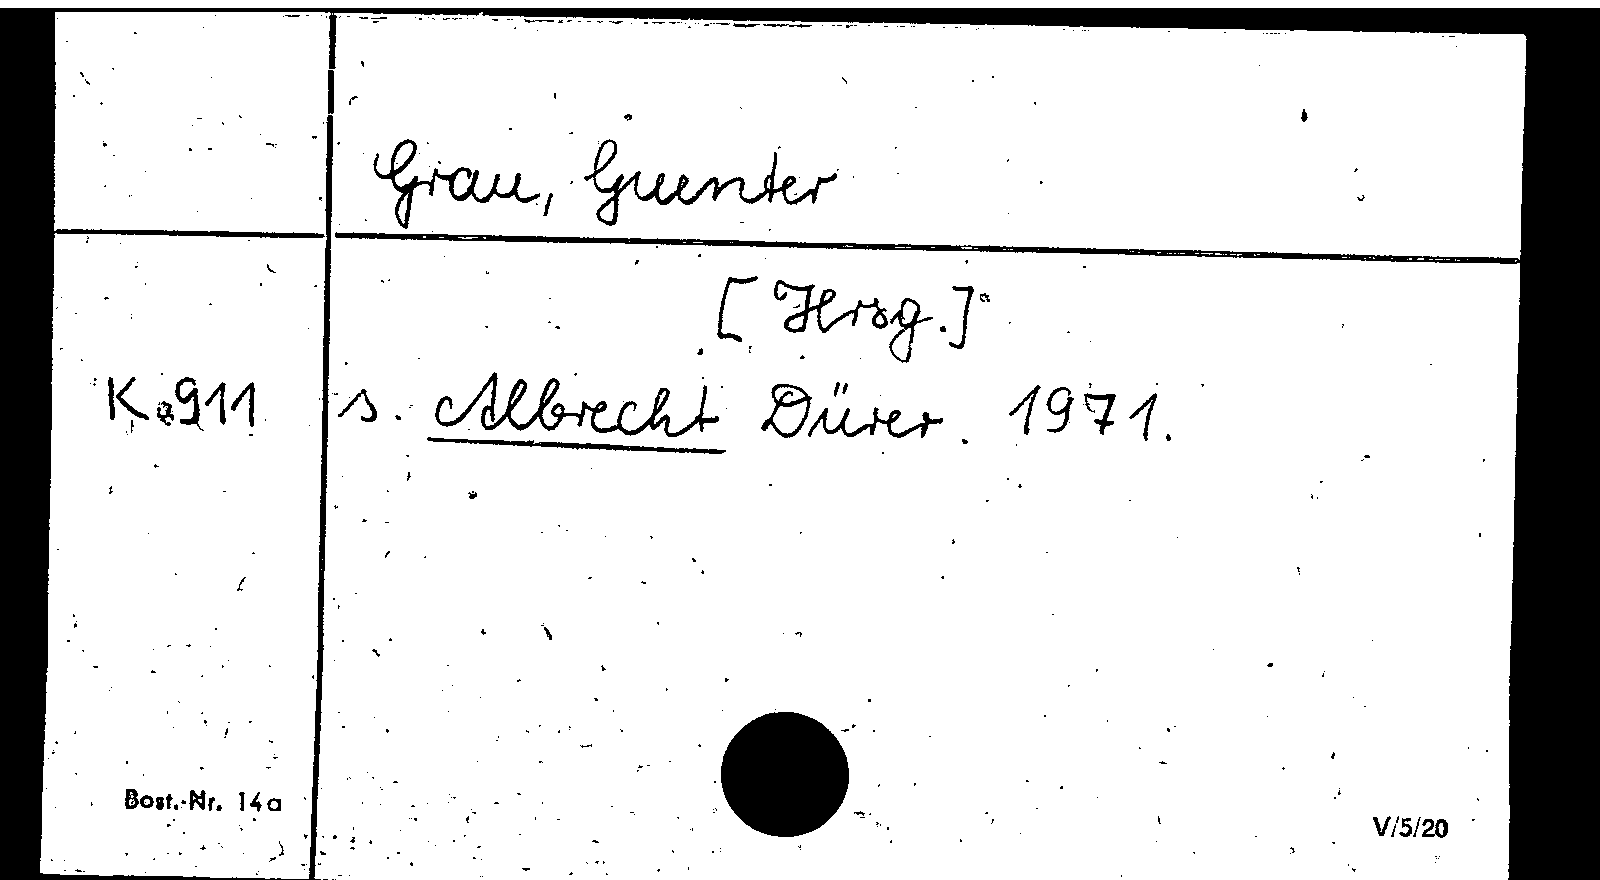 Grau, Guenter
[Hrsg.]
K 911 s. Albrecht Dürer. 1971.
Best.-Nr. 14a
V/5/20